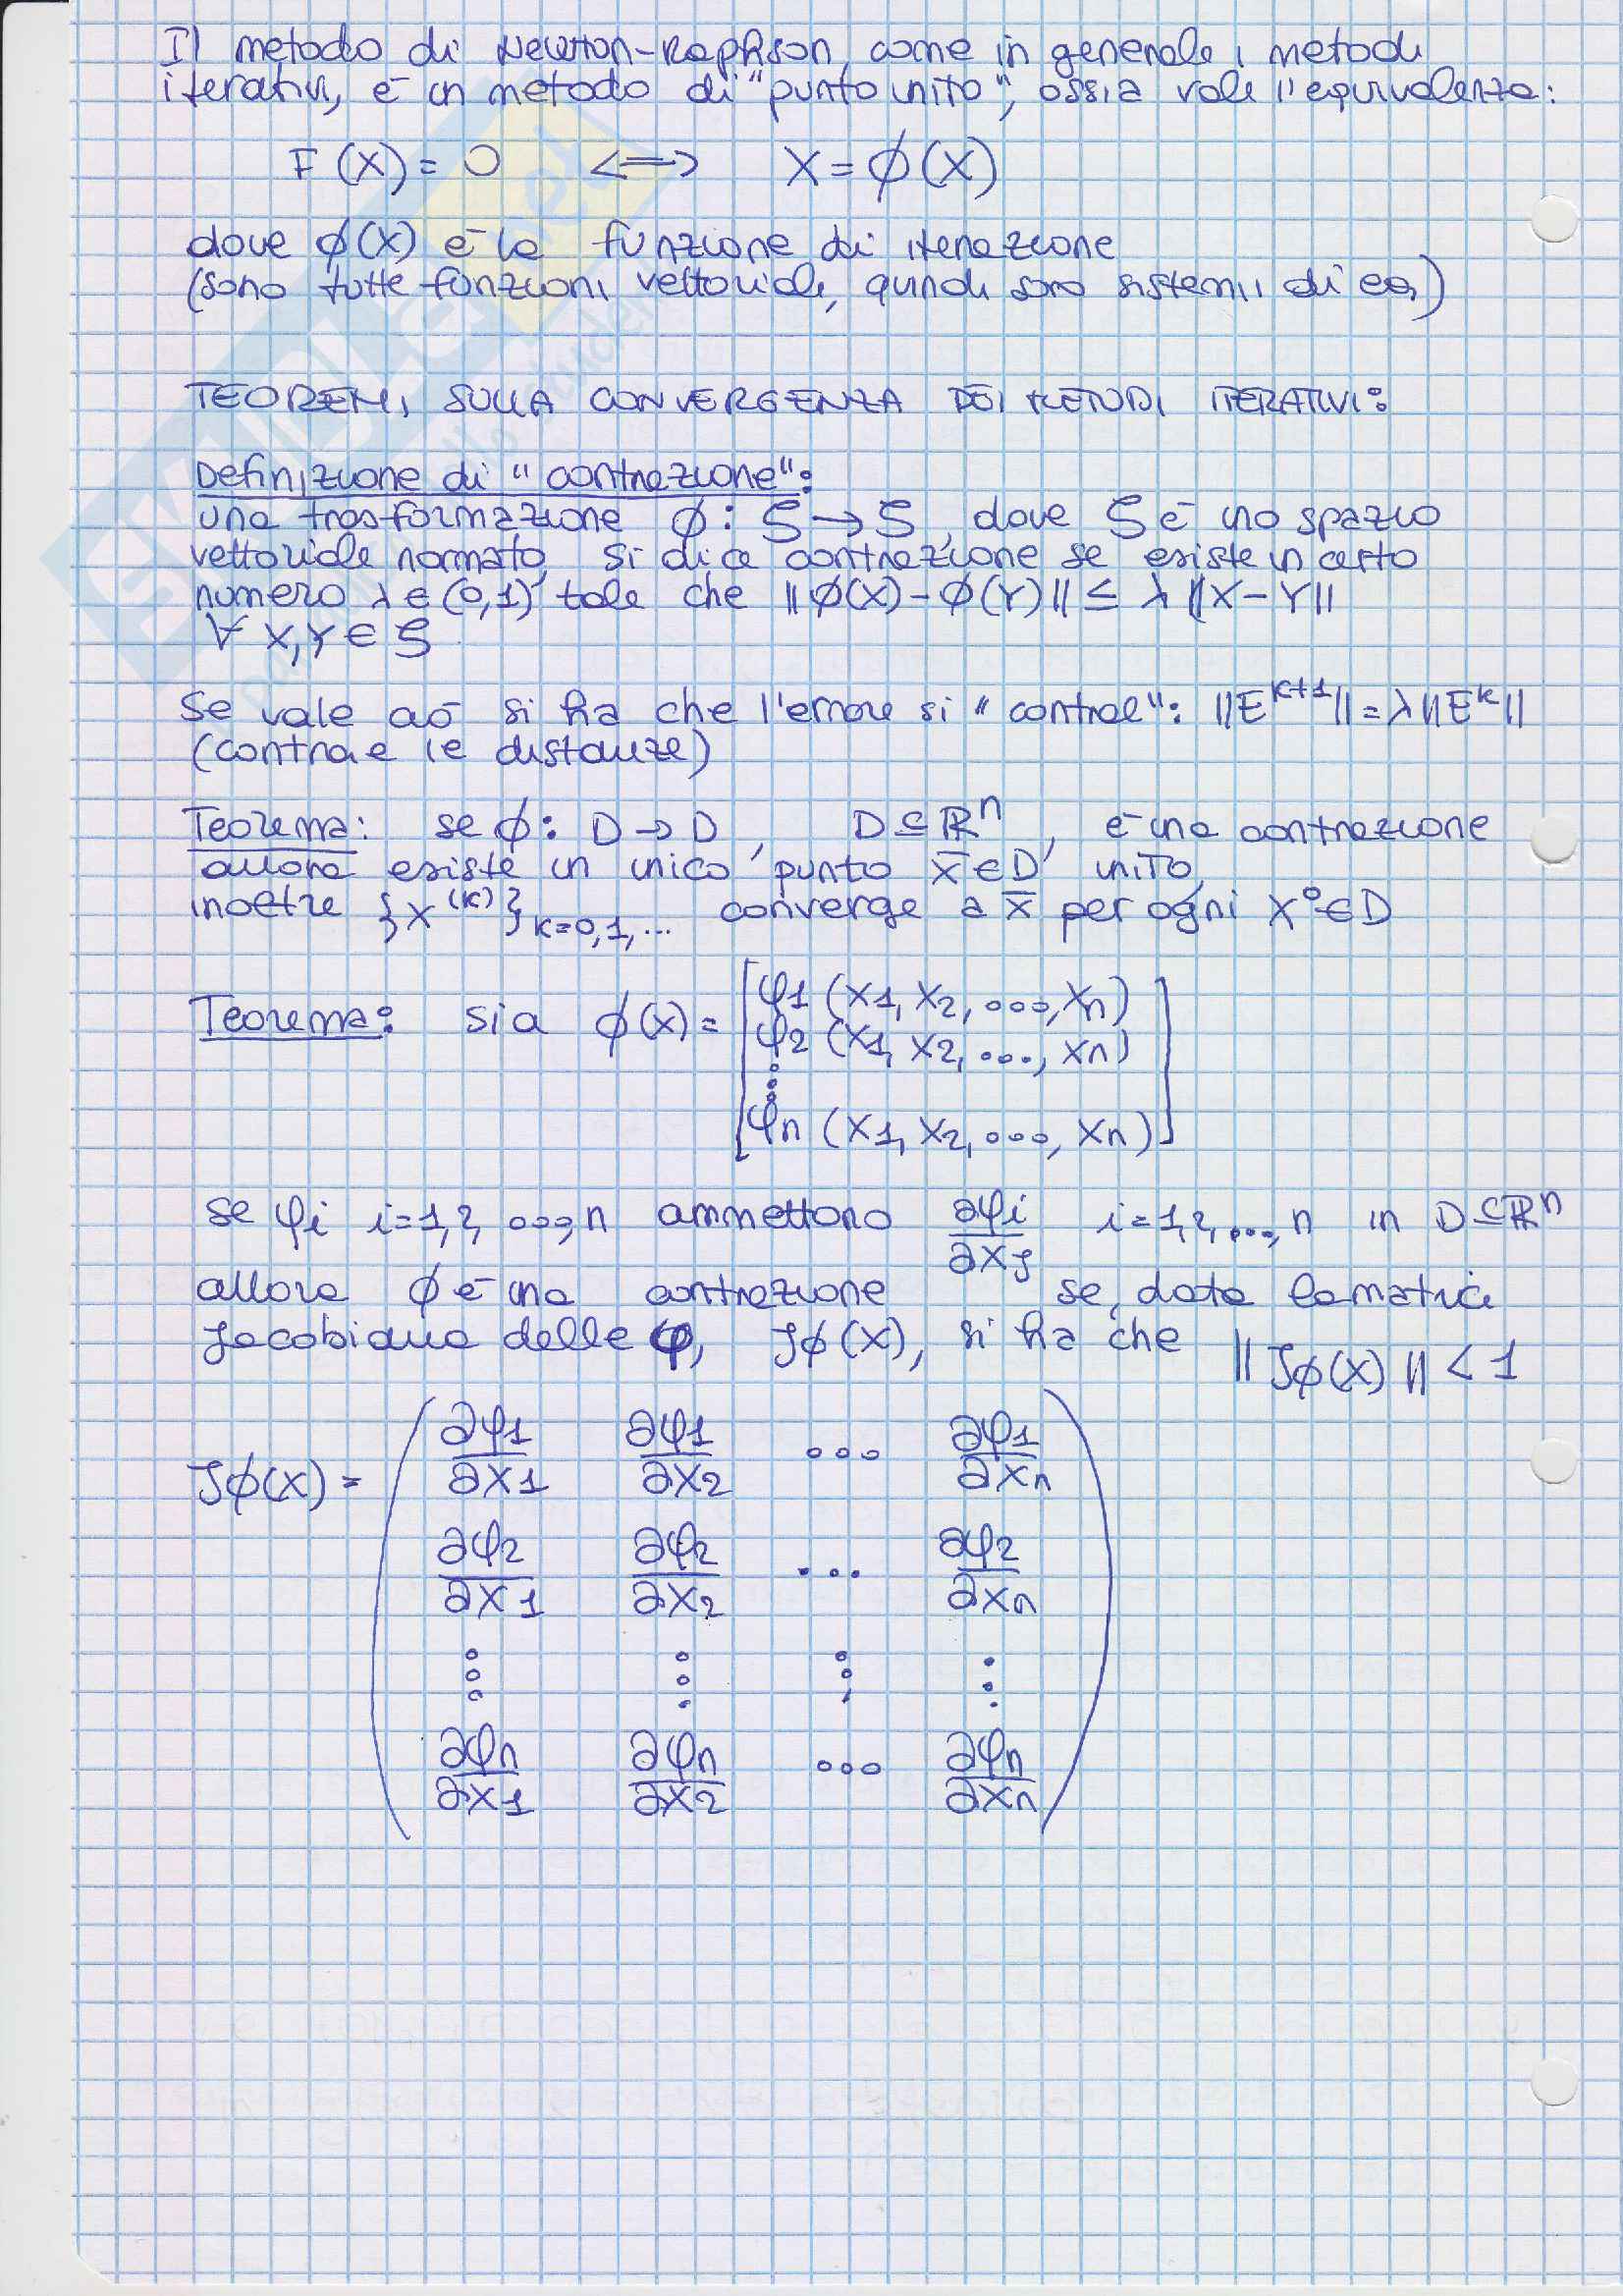 Il metodo di Newton-Raphson, come in generale i metodi
iterativi, è un metodo di "punto unito", ossia vale l'equivalenza:
F(X) = 0 <=> X = ϕ(X)
dove ϕ(X) è la funzione di iterazione
(sono tutte funzioni vettoriali, quindi sono sistemi di eq.)
TEOREMI SULLA CONVERGENZA DEI METODI ITERATIVI:
Definizione di "contrazione":
una trasformazione ϕ: S → S, dove S è uno spazio
vettoriale normato, si dice contrazione se esiste un certo
numero λ ∈ (0,1) tale che ||ϕ(X) - ϕ(Y)|| ≤ λ ||X - Y||
∀ X, Y ∈ S
Se vale ciò si ha che l'errore si "contrae": ||E^{k+1}|| = λ ||E^k||
(contrae le distanze)
Teorema: se ϕ: D → D, D ⊆ ℝ^n, è una contrazione
allora esiste un unico punto x̄ ∈ D unito,
inoltre {x^{(k)}}_{k=0,1,...} converge a x̄ per ogni X° ∈ D
Teorema: sia ϕ(x) = [φ1 (x1, x2, ..., xn)
φ2 (x1, x2, ..., xn)
⋮
φn (x1, x2, ..., xn)]
se φi i=1,2,...,n ammettono ∂φi/∂xj i=1,2,...,n in D ⊆ ℝ^n
allora ϕ è una contrazione se, data la matrice
Jacobiana delle φ, Jϕ(X), si ha che || Jϕ(X) || < 1
Jϕ(X) = ( ∂φ1/∂x1 ∂φ1/∂x2 ... ∂φ1/∂xn
∂φ2/∂x1 ∂φ2/∂x2 ... ∂φ2/∂xn
⋮ ⋮ ⋮ ⋮
∂φn/∂x1 ∂φn/∂x2 ... ∂φn/∂xn )